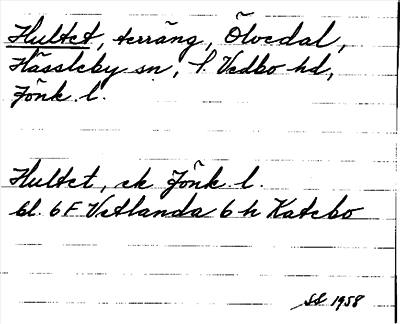 Hultet, terräng, Ölvedal,
Hässleby sn, S. Vedbo hd,
Jönk. l.
Hultet, ek Jönk. l.
bl. 6 F Vetlanda 6 h Katebo
SS 1958